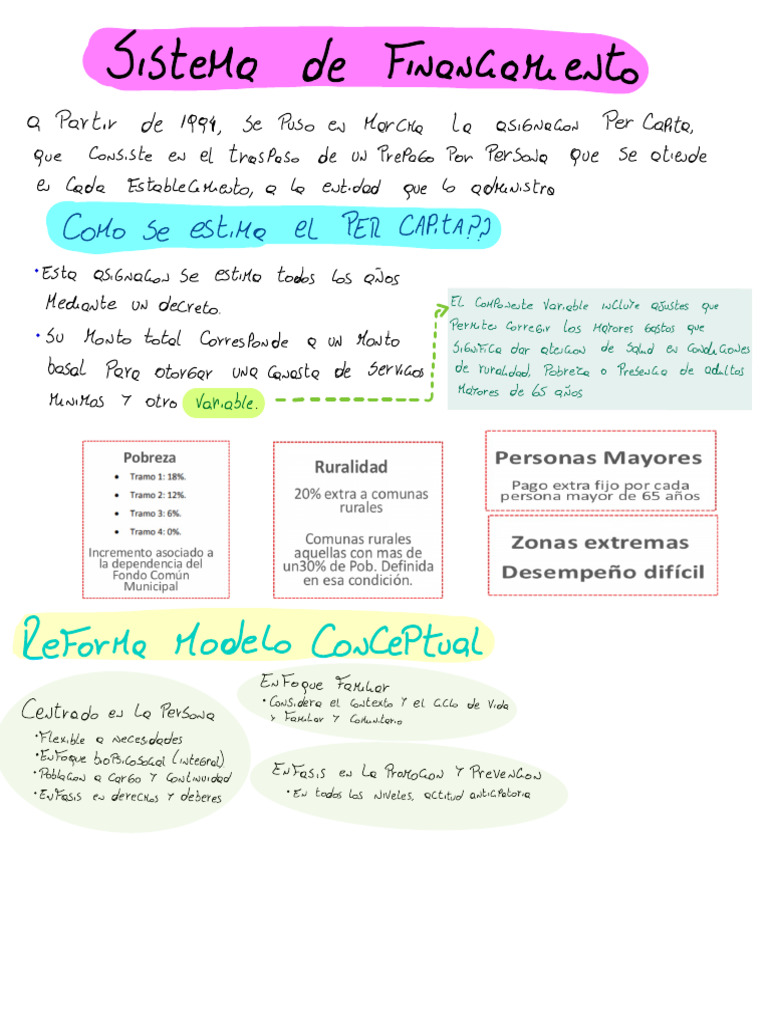 Sistema de Financiamiento
a partir de 1994, se puso en marcha la asignacion per capita,
que consiste en el traspaso de un prepago por persona que se atiende
en cada establecimiento, a la entidad que lo administra
Como se estima el PER CAPITA??
• Esta asignacion se estima todos los años
mediante un decreto.
• Su monto total corresponde a un monto
basal para otorgar una canasta de servicios
minimos y otro variable.
El componente variable incluye ajustes que
permiten corregir los mayores gastos que
significa dar atencion de salud en condiciones
de ruralidad, pobreza o presencia de adultos
mayores de 65 años
Pobreza
• Tramo 1: 18%.
• Tramo 2: 12%.
• Tramo 3: 6%.
• Tramo 4: 0%.
Incremento asociado a
la dependencia del
Fondo Común
Municipal
Ruralidad
20% extra a comunas
rurales
Comunas rurales
aquellas con mas de
un30% de Pob. Definida
en esa condición.
Personas Mayores
Pago extra fijo por cada
persona mayor de 65 años
Zonas extremas
Desempeño difícil
Reforma Modelo Conceptual
Centrado en la persona
• Flexible a necesidades
• Enfoque biopsicosocial (integral)
• Poblacion a cargo y continuidad
• Enfasis en derechos y deberes
Enfoque Familiar
• Considera el contexto y el ciclo de vida
y familiar y comunitario
Enfasis en la promocion y prevencion
• En todos los niveles, actitud anticipatoria